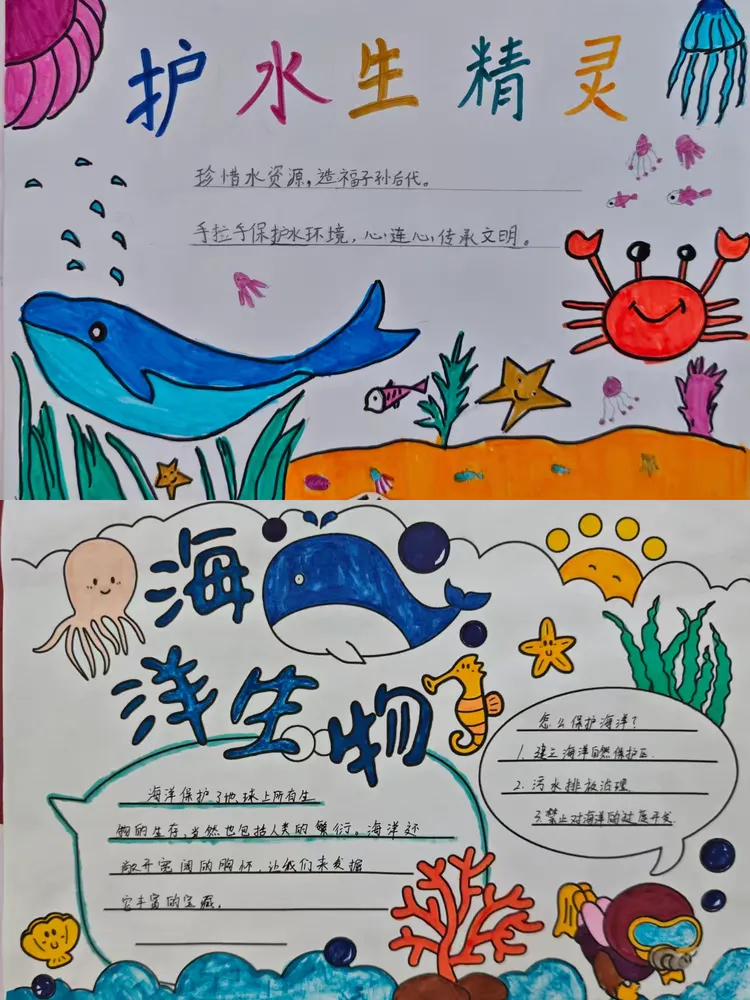 护水生精灵
珍惜水资源，造福子孙后代。
手拉手保护水环境，心连心传承文明。
海
洋生物
海洋保护了地球上所有生
物的生存，当然也包括人类的繁衍。海洋还
敞开宽阔的胸怀，让我们来发掘
它丰富的宝藏。
怎么保护海洋？
1. 建立海洋自然保护区.
2. 污水排放治理.
3.禁止对海洋的过度开发.